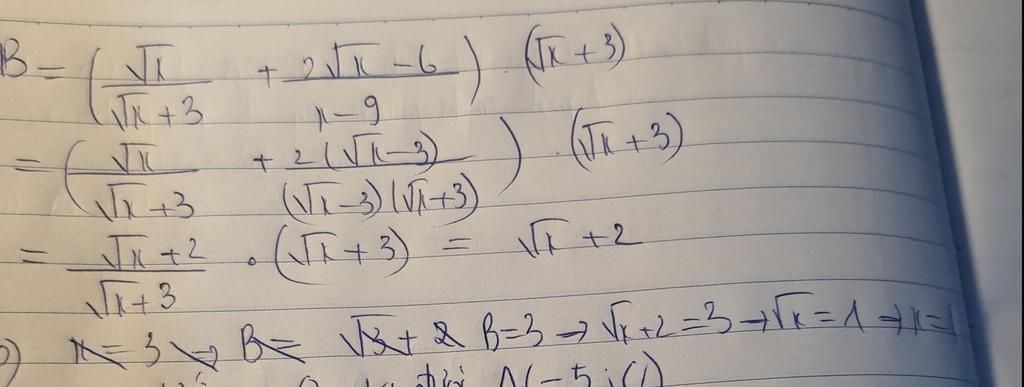 B = (√x / (√x + 3) + (2√x - 6) / (x - 9)) . (√x + 3)
= (√x / (√x + 3) + 2(√x - 3) / ((√x - 3)(√x + 3))) . (√x + 3)
= (√x + 2) / (√x + 3) . (√x + 3) = √x + 2
x = 3 → B = √3 + 2 B = 3 → √x + 2 = 3 → √x = 1 → x = 1